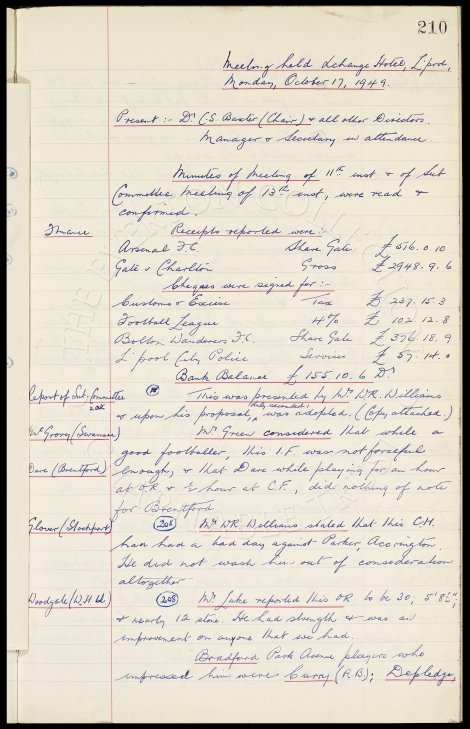 210
Meeting held Exchange Hotel, L'pool,
Monday, October 17, 1949.
Present :- Dr C.S. Baxter (Chair) & all other Directors.
Manager & Secretary in attendance
Minutes of Meeting of 11th inst & of Sub
Committee Meeting of 13th inst, were read &
confirmed.
Finance Receipts reported were :-
Arsenal F.C. Share Gate £ 576. 0. 10
Gate v Charlton Gross £ 2948. 9. 6
Cheques were signed for :-
Customs & Excise Tax £ 237. 15. 3
Football League 4% £ 102. 12. 8
Bolton Wanderers F.C. Share Gate £ 376. 18. 9
L'pool City Police Services £ 57. 14. 0
Bank Balance £ 155. 10. 6 Dr
Report of Sub-Committee This was presented by Mr W.R. Williams
208
& upon his proposal, duly seconded, was adopted. (Copy attached.)
McGrory (Swansea) Mr Green considered that while a
good footballer, this I.F. was not forceful
Dare (Brentford) enough, & that Dare while playing for an hour
at O.R & ½ hour at C.F., did nothing of note
for Brentford
Glover (Stockport) 208 Mr W.R. Williams stated that this C.H.
had had a bad day against Parker, Accrington.
He did not wash him out of consideration
altogether
Woodgate (W.H. Utd.) 208 Mr Lake reported this OR to be 30, 5' 8½",
& nearly 12 stone. He had strength & was an
improvement on anyone that we had.
Bradford Park Avenue players who
impressed him were Currry (R.B); Depledge,